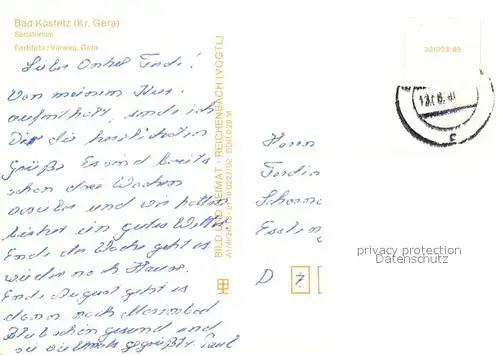 Bad Köstritz (Kr. Gera)
Sanatorium
Farbfoto: Vorweg, Gera
Lieber Onkel Ferdi!
Von meinem Kur-
aufenthalt sende ich
Dir die herzlichsten
Grüße. Es sind bereits
schon drei Wochen
vorüber und wir hatten
bisher ein gutes Wetter
Ende der Woche geht es
wieder nach Hause.
Ende August geht es
dann nach
gesund und
sei vielmals gegrüßt v. Paul
BILD UND HEIMAT · REICHENBACH (VOGTL)
Herrn
Ferdin
Esslin
D 7
privacy protection
Datenschutz